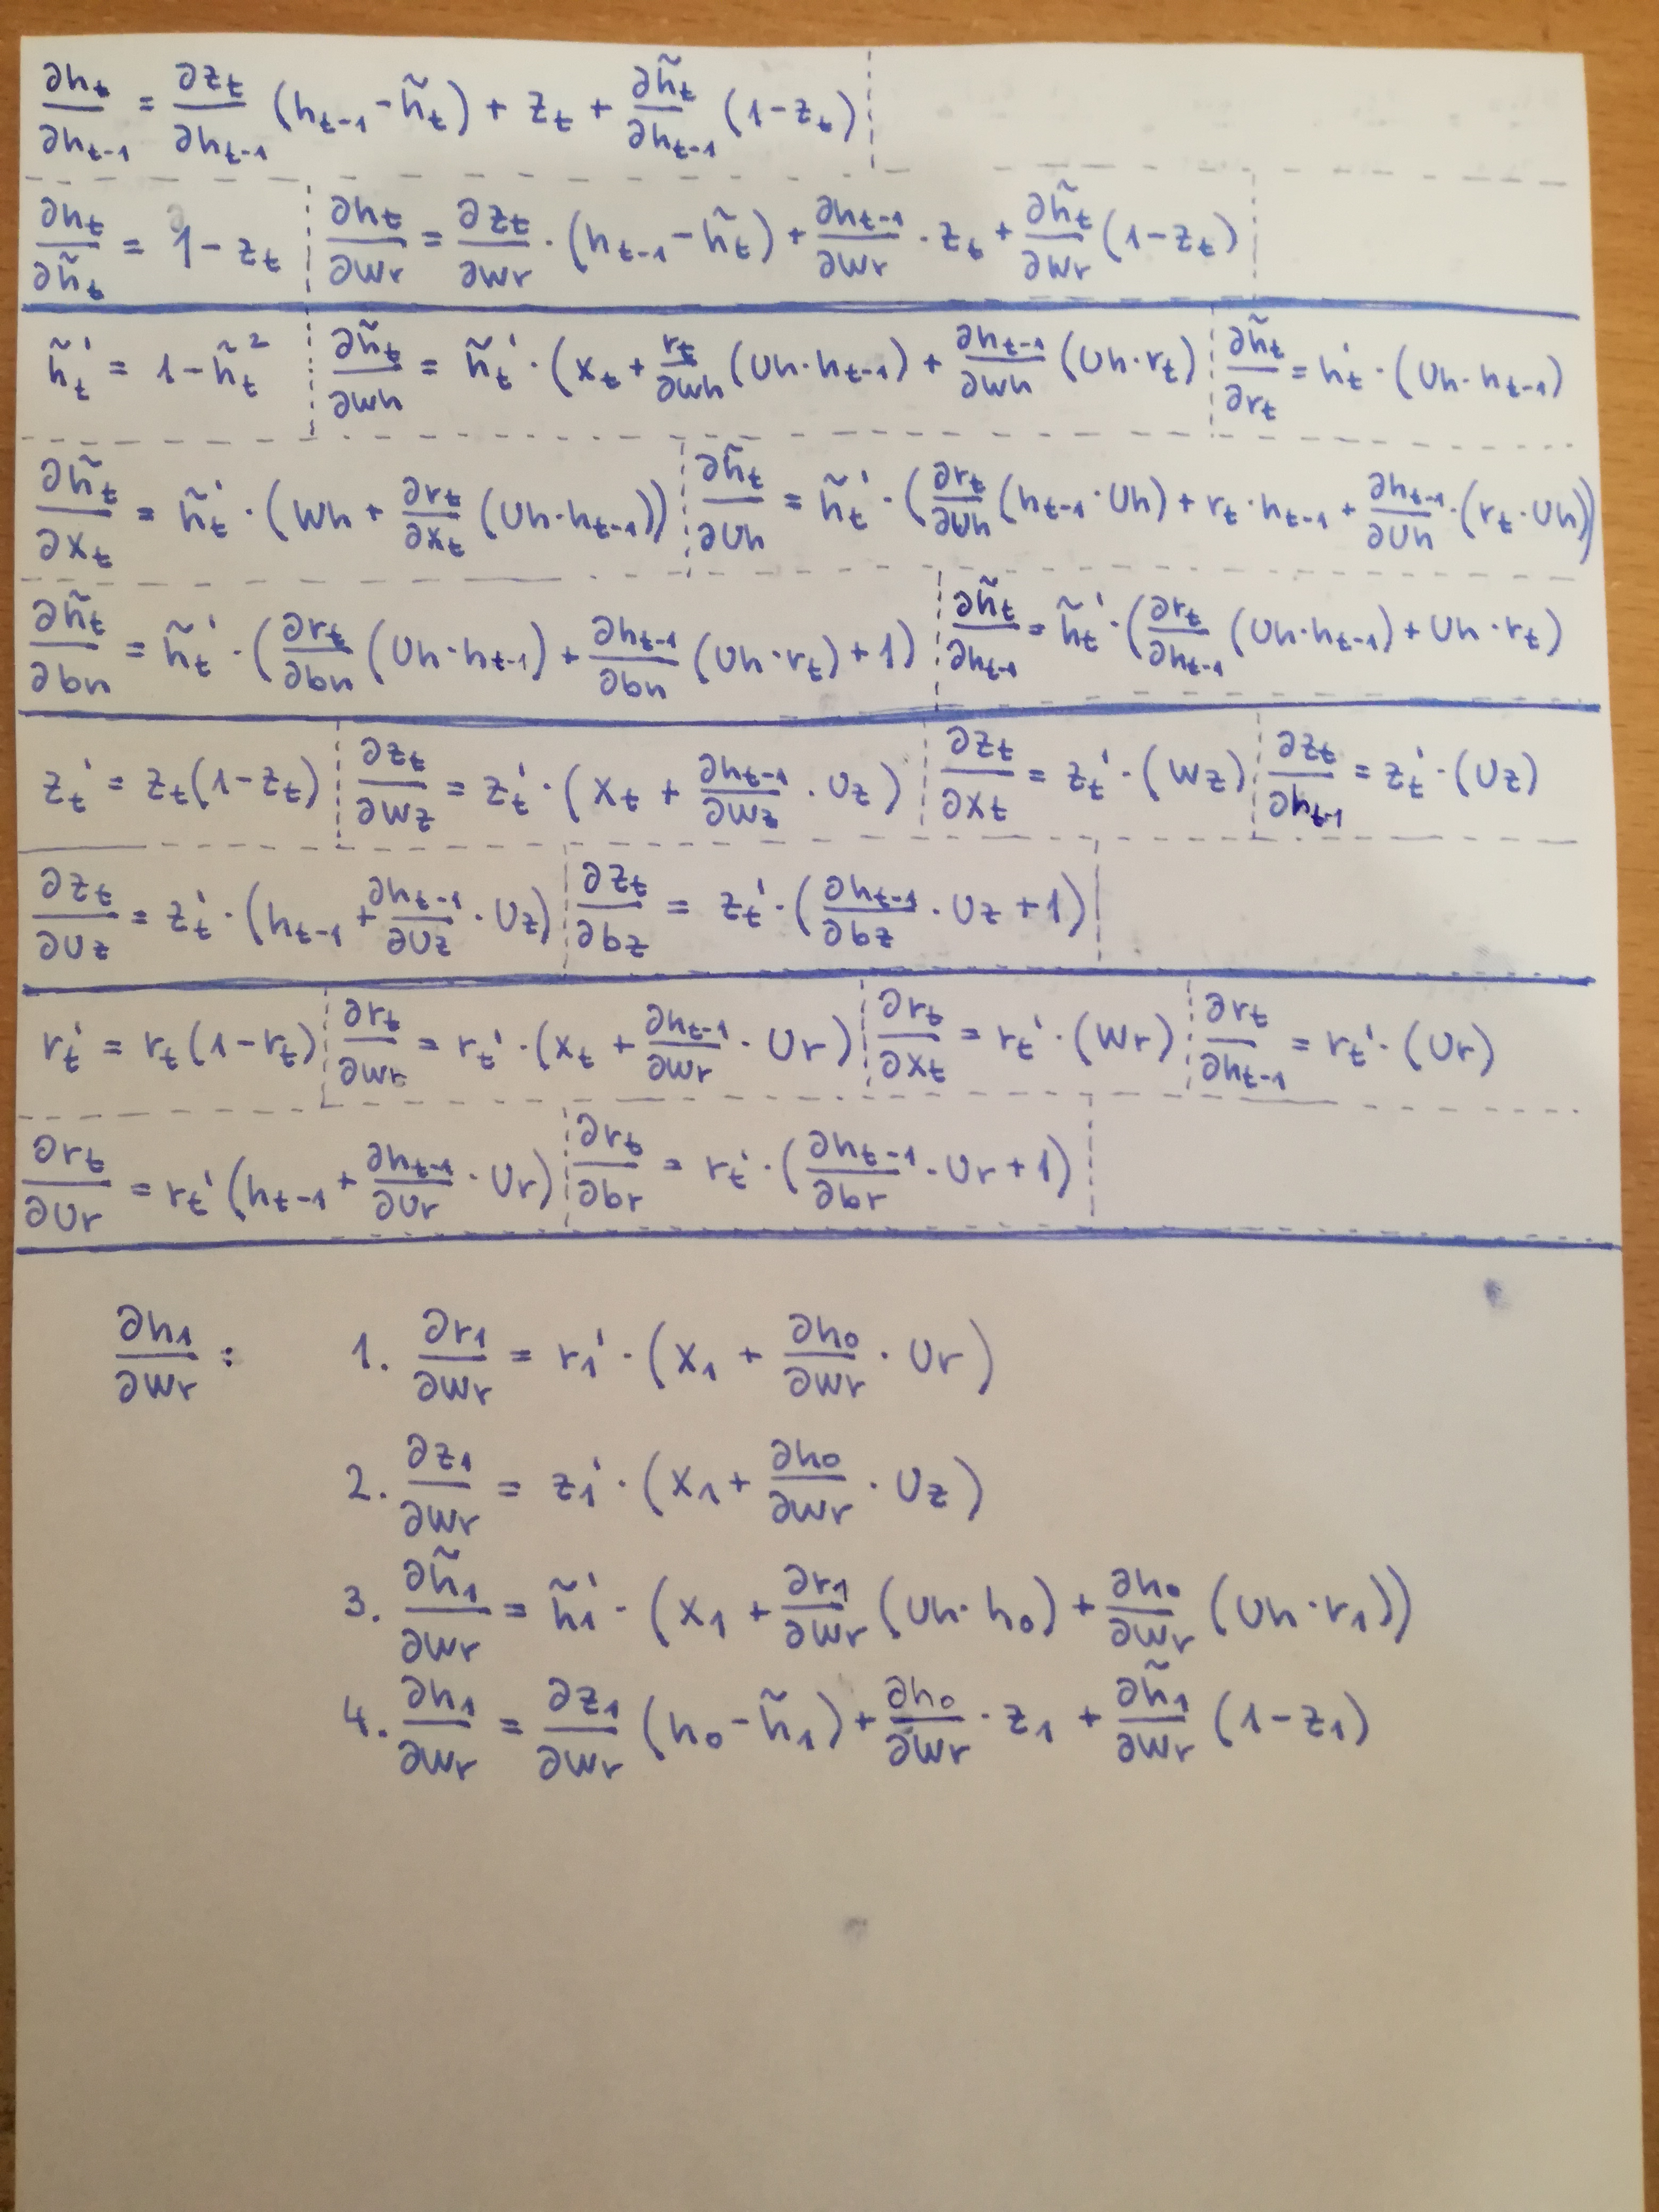 ∂hₜ/∂hₜ₋₁ = ∂zₜ/∂hₜ₋₁ (hₜ₋₁ - h̃ₜ) + zₜ + ∂h̃ₜ/∂hₜ₋₁ (1 - zₜ)
∂hₜ/∂h̃ₜ = 1 - zₜ
∂hₜ/∂wr = ∂zₜ/∂wr · (hₜ₋₁ - h̃ₜ) + ∂hₜ₋₁/∂wr · zₜ + ∂h̃ₜ/∂wr (1 - zₜ)
h̃ₜ' = 1 - h̃ₜ²
∂h̃ₜ/∂wh = h̃ₜ' · (xₜ + rₜ/∂wh (Uh·hₜ₋₁) + ∂hₜ₋₁/∂wh (Uh·rₜ)
∂h̃ₜ/∂rₜ = hₜ' · (Uh·hₜ₋₁)
∂h̃ₜ/∂xₜ = h̃ₜ' · (Wh + ∂rₜ/∂xₜ (Uh·hₜ₋₁))
∂h̃ₜ/∂Uh = h̃ₜ' · (∂rₜ/∂Uh (hₜ₋₁·Uh) + rₜ·hₜ₋₁ + ∂hₜ₋₁/∂Uh · (rₜ·Uh))
∂h̃ₜ/∂bh = h̃ₜ' · (∂rₜ/∂bh (Uh·hₜ₋₁) + ∂hₜ₋₁/∂bh (Uh·rₜ) + 1)
∂h̃ₜ/∂hₜ₋₁ = h̃ₜ' · (∂rₜ/∂hₜ₋₁ (Uh·hₜ₋₁) + Uh·rₜ)
zₜ' = zₜ(1 - zₜ)
∂zₜ/∂wz = zₜ' · (xₜ + ∂hₜ₋₁/∂wz · Uz)
∂zₜ/∂xₜ = zₜ' · (Wz)
∂zₜ/∂hₜ₋₁ = zₜ' · (Uz)
∂zₜ/∂Uz = zₜ' · (hₜ₋₁ + ∂hₜ₋₁/∂Uz · Uz)
∂zₜ/∂bz = zₜ' · (∂hₜ₋₁/∂bz · Uz + 1)
rₜ' = rₜ(1 - rₜ)
∂rₜ/∂wr = rₜ' · (xₜ + ∂hₜ₋₁/∂wr · Ur)
∂rₜ/∂xₜ = rₜ' · (Wr)
∂rₜ/∂hₜ₋₁ = rₜ' · (Ur)
∂rₜ/∂Ur = rₜ' (hₜ₋₁ + ∂hₜ₋₁/∂Ur · Ur)
∂rₜ/∂br = rₜ' · (∂hₜ₋₁/∂br · Ur + 1)
∂h₁/∂wr : 1. ∂r₁/∂wr = r₁' · (x₁ + ∂h₀/∂wr · Ur)
2. ∂z₁/∂wr = z₁' · (x₁ + ∂h₀/∂wr · Uz)
3. ∂h̃₁/∂wr = h̃₁' · (x₁ + ∂r₁/∂wr (Uh·h₀) + ∂h₀/∂wr (Uh·r₁))
4. ∂h₁/∂wr = ∂z₁/∂wr (h₀ - h̃₁) + ∂h₀/∂wr · z₁ + ∂h̃₁/∂wr (1 - z₁)